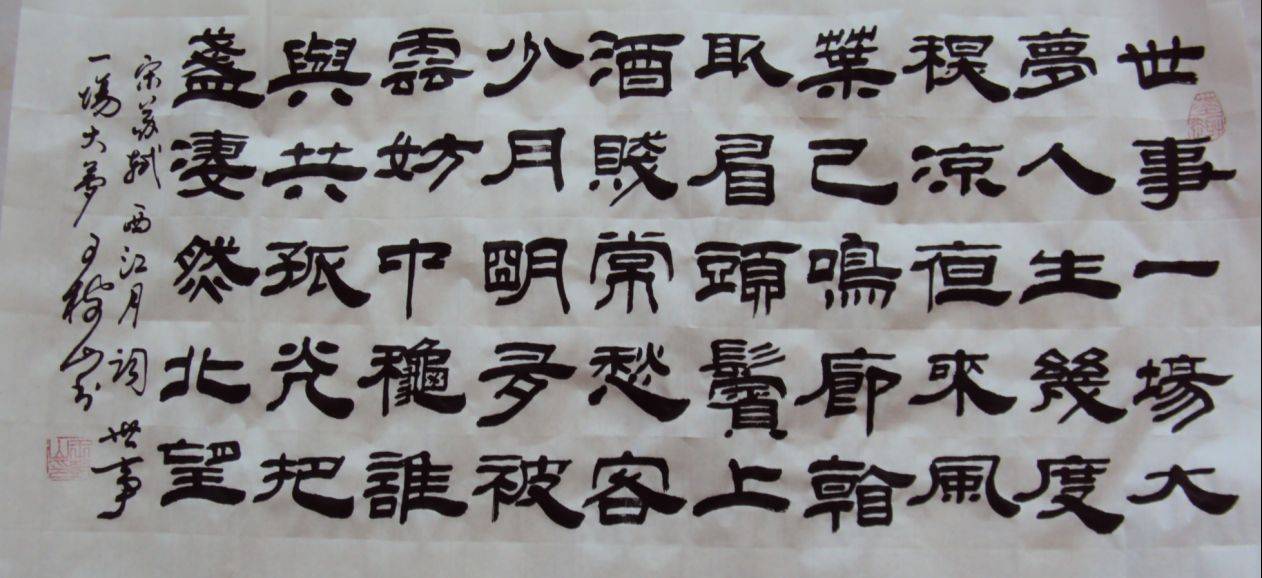 世事一場大
夢人生幾度
秋涼夜來風
葉已鳴廊看
取眉頭鬢上
酒賤常愁客
少月明多被
雲妨中龝誰
與共孤光把
盞淒然北望
宋蘇軾西江月詞世事
一場大夢王樹山书